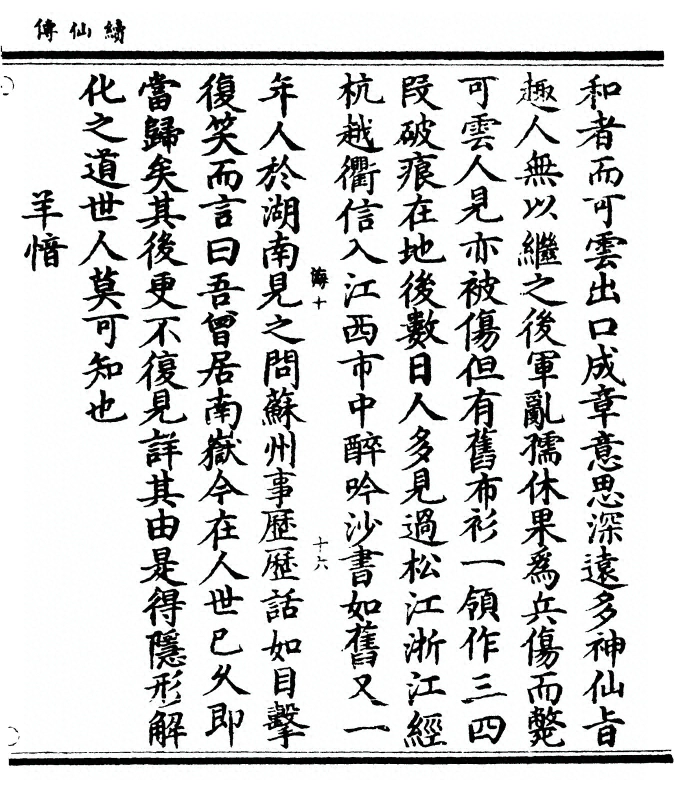 續仙傳
和者而可雲出口成章意思深遠多神仙旨
趣人無以繼之後軍亂孺休果爲兵傷而斃
可雲人見亦被傷但有舊布衫一領作三四
段破痕在地後數日人多見過松江浙江經
杭越衢信入江西市中醉吟沙書如舊又一
海十
十六
年人於湖南見之問蘇州事歷歷話如目擊
復笑而言曰吾曾居南嶽今在人世已久即
當歸矣其後更不復見詳其由是得隱形解
化之道世人莫可知也
羊愔